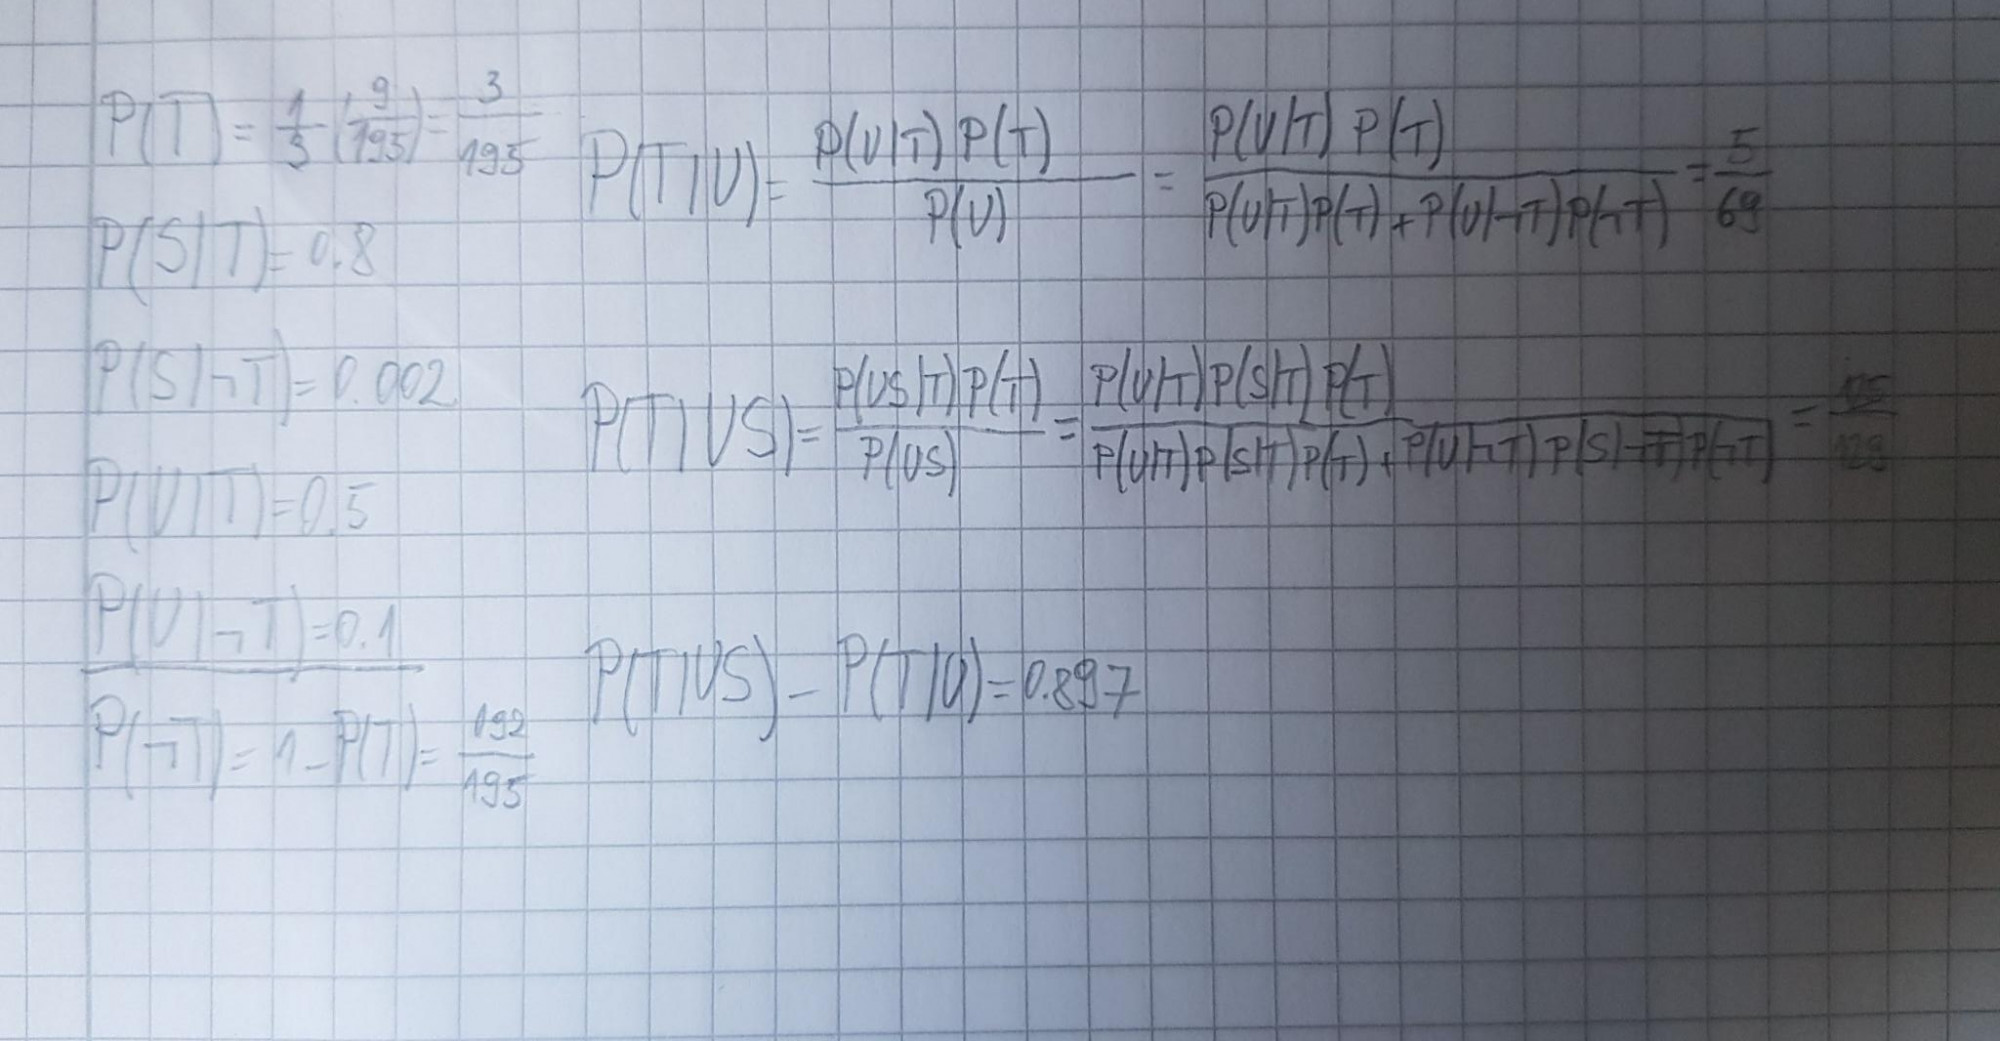 P(T) = 1/3 (9/195) = 3/195
P(S|T) = 0.8
P(S|¬T) = 0.002
P(U|T) = 0.5
P(U|¬T) = 0.1
P(¬T) = 1 - P(T) = 192/195
P(T|U) = P(U|T) P(T) / P(U) = P(U|T) P(T) / P(U|T)P(T) + P(U|¬T)P(¬T) = 5/69
P(T|US) = P(US|T) P(T) / P(US) = P(U|T) P(S|T) P(T) / P(U|T) P(S|T) P(T) + P(U|¬T) P(S|¬T) P(¬T) =
P(T|US) - P(T|U) = 0.897